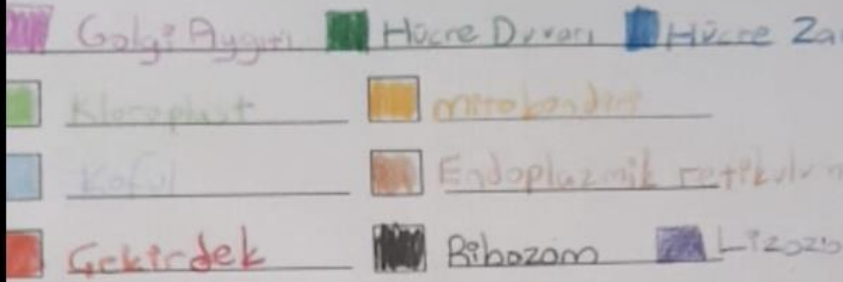 Golgi Aygıtı Hücre Duvarı Hücre Za
Kloroplast mitokondri
Koful Endoplazmik retikulum
Çekirdek Ribozom Lizozo